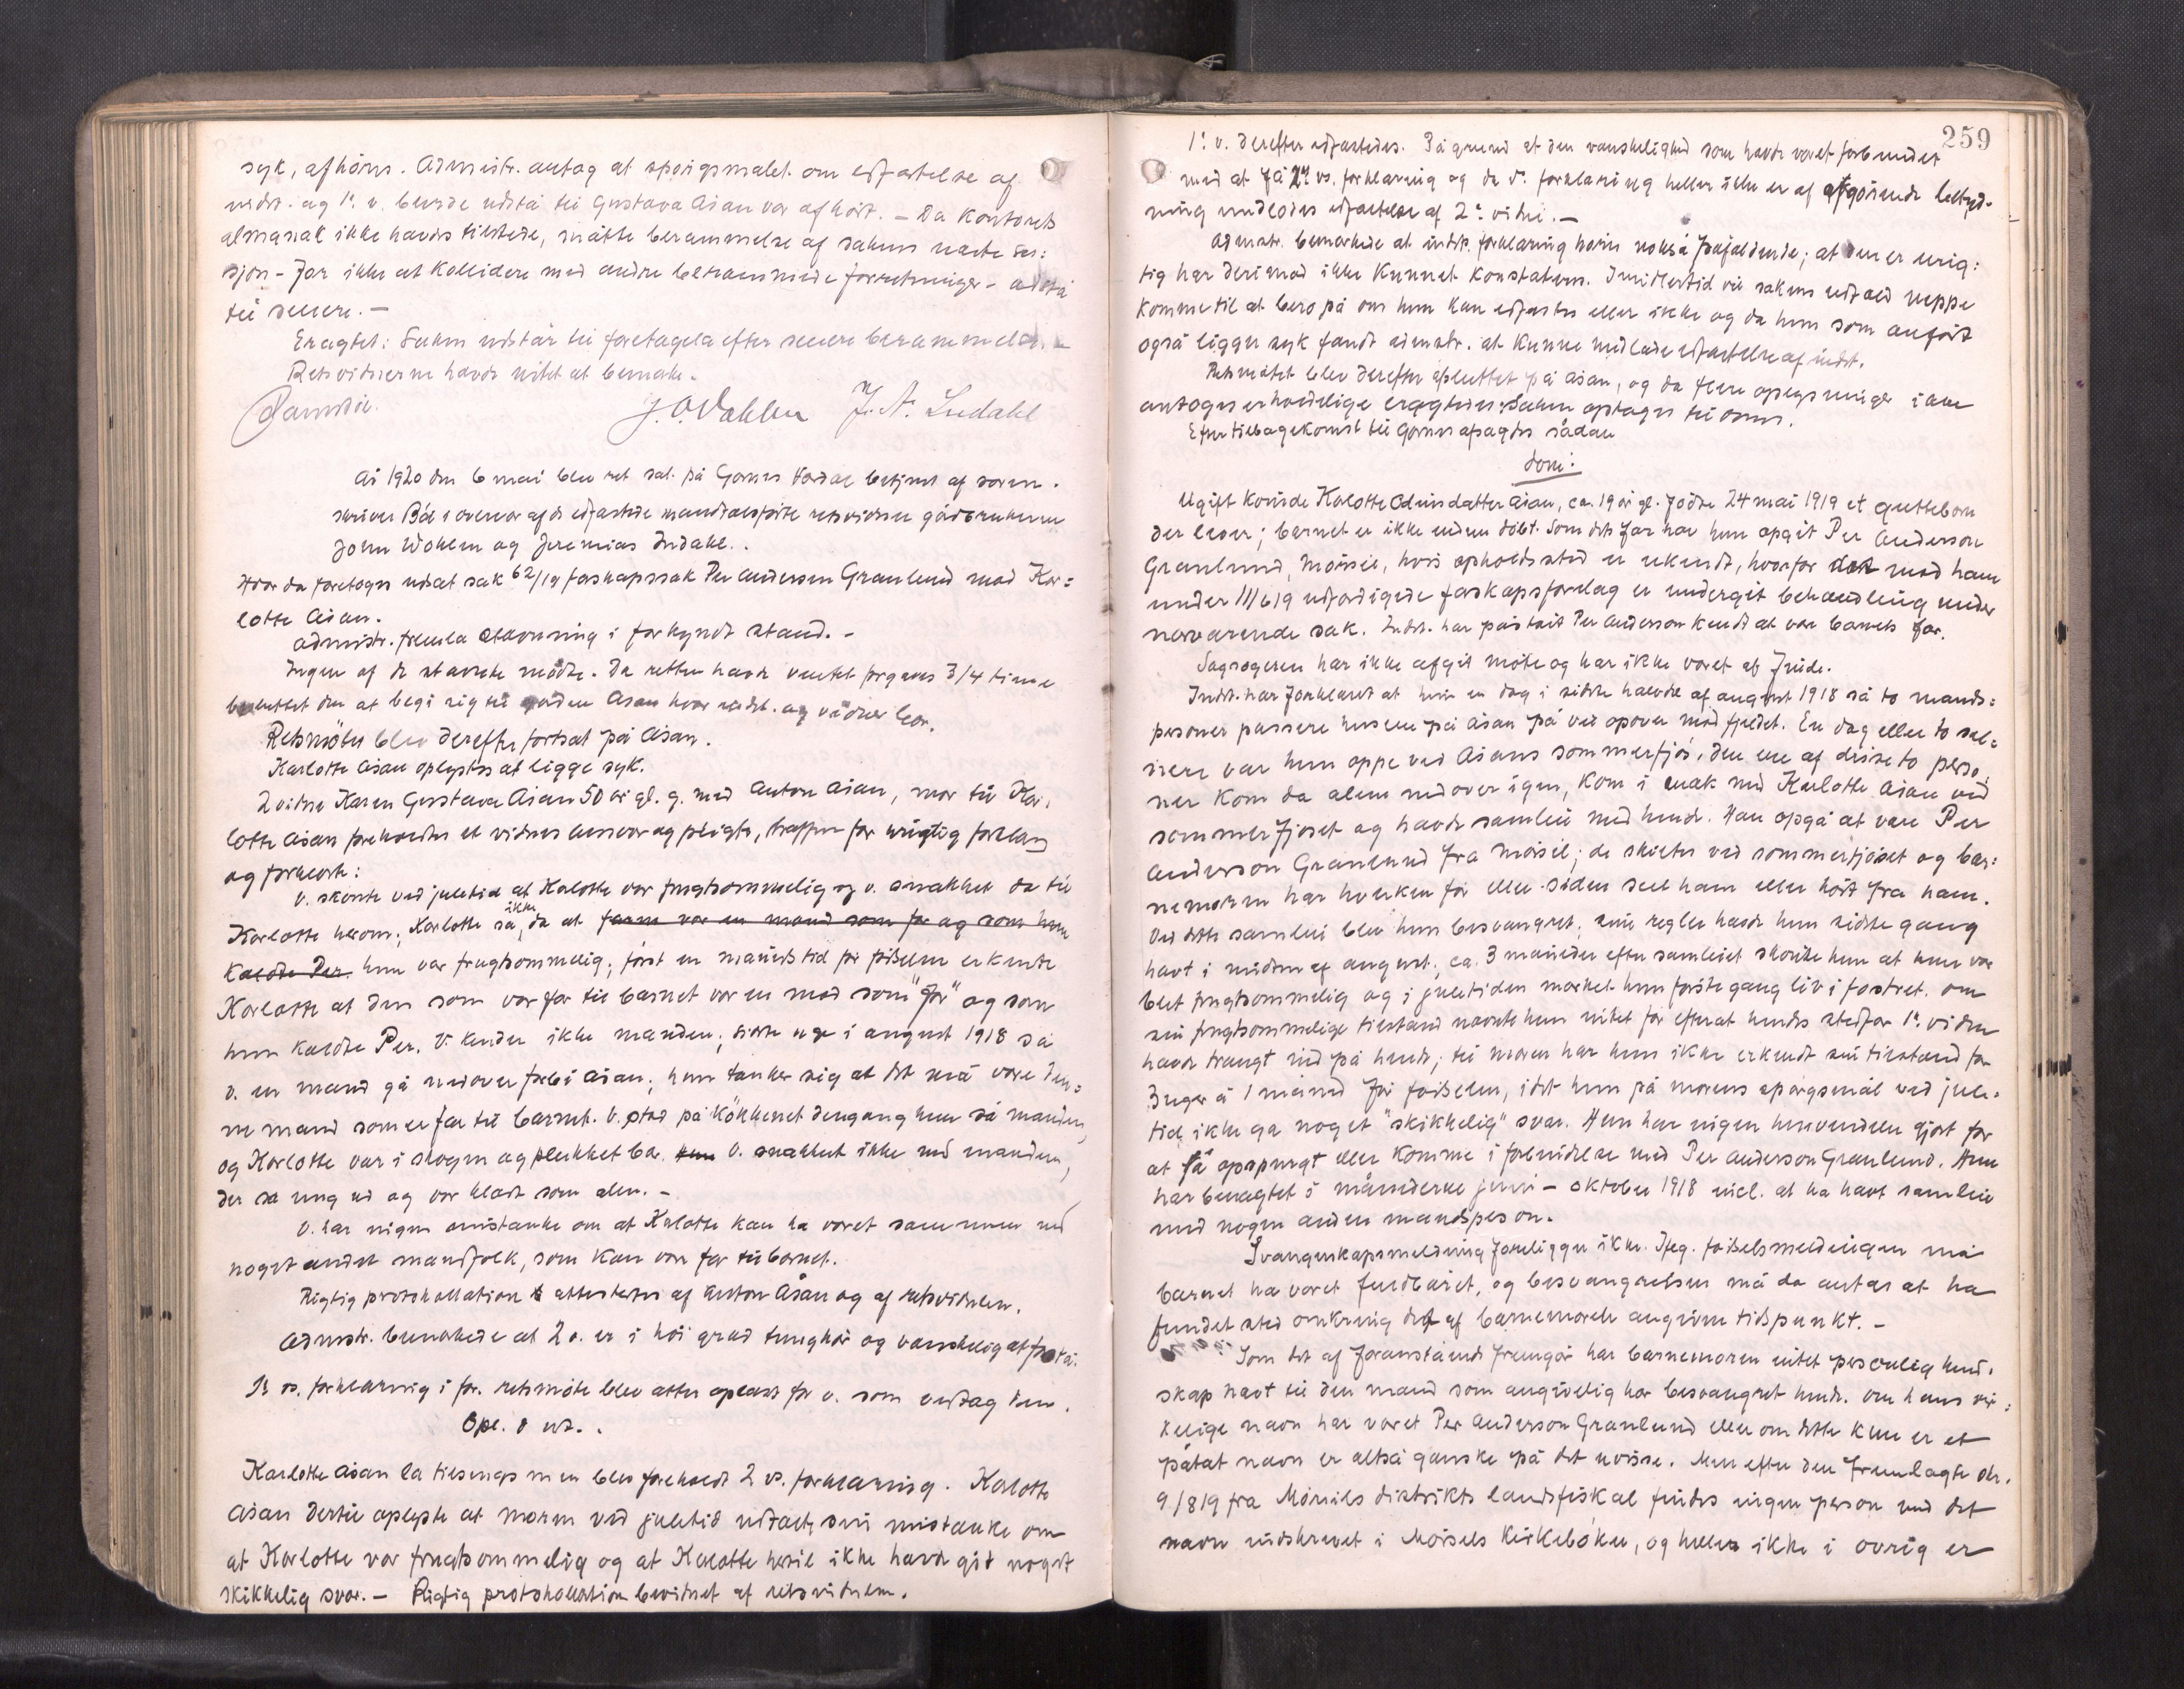 syk, afhöres. Administr. antog at spörgsmalet om edfæstelse af
indst. og 1. v. burde udstå til Gustava Åsan var afhört. – Da kontorets
almanak ikke havdes tilstede, måtte berammelse af sakens næste ses:
sjon – for ikke at kollidere med andre berammede forretninger – udstå
til senere. –
Eragtet: Saken udstår til foretagelse efter senere berammelse. –
Retsvidnerne havde intet at bemærke.
J. O. Vohlen J. N. Indahl
År 1920 den 6 mai blev ret sat på Gornes Verdal betjent af soren.
skriver Bö i overvær af de edfæstede mandtalsförte retsvidner gårdbrukerne
John Wohlen og Jeremias Indahl. .
Hvor da foretoges utsat sak 62/19 farskapssak Per Anderson Granlund mod Kar=
lotte Åsan.
Admistr. fremla stævning i forkyndt stand. –
Ingen af de stævnte mödte. Da retten havde ventet forgjæves 3/4 time
besluttet den at begi sig til gården Åsan hvor indst. og vidner bor.
Retsmötet blev derefter fortsat på Åsan.
Karlotte Åsan oplystes at ligge syk.
2 vidne Karen Gustava Åsan 50 år gl. g. med Anton Åsan, mor til Kar.
lotte Åsan foreholdtes et vidnes ansvar og pligter, straffen for urigtig forklaring
og forklarte:
V. skönte ved juletid at Karlotte var frugtsommelig og v. snakket da til
Karlotte herom; Karlotte sa ikke da at faren var en mand som for og som hun
kaldte Per. hun var frugtsommelig; först en måneds tid för födselen erkendte
Karlotte at den som var far til barnet var en mand som "for" og som
hun kaldte Per. V. kender ikke manden; sidste uge i august 1918 så
v. en mand gå nedover forbi Åsan; hun tænker sig at det må være den=
ne mand som er far til barnet. V. stod på kökkenet dengang hun så manden,
og Karlotte var i skogen og plukket bær. Hun V. snakket ikke med manden,
der så ung ud og var klædt som alm. –
V. har ingen mistanke om at Karlotte kan ha været sammen med
noget andet mandfolk, som kan være far til barnet.
Rigtig protokollation attesteres af Anton Åsan og af retsvidnene.
Admstr. bemerkede at 2 v. er i höi grad tunghör og vanskelig at forstå.
1s vs. forklaring i för. retsmöte blev atter oplæst for v. som vedtag den.
Opl. & vt. .
Karlotte Åsan lå tilsengs men blev foreholdt 2 vs. forklaring. Karlotte
Åsan dertil oplyste at moren ved juletid udtalte sin mistanke om
at Karlotte var frugtsommelig og at Karlotte hertil ikke havde git noget
skikkelig svar. – Rigtig protokollation bevidnet af retsvidnene.
259
1. v. derefter edfæstedes. På grund af den vanskelighed som havde været forbundet
med at få 2n vs. forklaring og da d. forklaring heller ikke er af afgörende betyd-
ning undlodes edfæstelse af 2. vidne. –
Admstr. bemerkede at indst. forklaring höres nokså påfaldende; at den er urig:
tig har derimod ikke kunnet konstateres. Imidlertid vil sakens udfald neppe
komme til at bero på om hun kan edfæstes eller ikke og da hun som anfört
også ligger syk fandt admstr. at kunne undlade edfæstelse af indst.
Retsmötet blev derefter sluttet på Åsan, og da flere oplysninger ikke
antoges erholdelige eragtedes: Saken optages til doms.
Efter tilbagekomst til Gornes afsagdes sådan
dom:
Ugift kvinde Karlotte Odinsdatter Åsan, ca. 19 år gl. födte 24 mai 1919 et guttebarn
der lever; barnet er ikke endnu döbt. Som dets far har hun opgit Per Anderson
Granlund, Mörsil, hvis opholdssted er ukendt, hvorfor det mod ham
under 11/6 19 udfærdigede farskapsforelæg er undergit behandling under
nærværende sak. Indst. har påstået Per Anderson kendt at være barnets far.
Sagsögeren har ikke afgit möte og har ikke været at finde.
Indst. har forklaret at hun en dag i sidste halvdel af august 1918 så to mands=
personer passere husene på Åsan på vei opover mod fjeldet. En dag eller to se=
nere var hun oppe ved Åsans sommerfjös, den ene af disse to perso.
ner kom da alene nedover igen, kom i snak med Karlotte Åsan ved
sommerfjöset og havde samleie med hende. Han opga at være Per
Anderson Granlund fra Mörsil; de skiltes ved sommerfjöset og bar:
nemoren har hverken för eller siden set ham eller hört fra ham.
Ved dette samleie blev hun besvangret; sine regler havde hun sidste gang
havt i midten af august, ca. 3 måneder efter samleiet skönte hun at hun var
blet frugtsommelig og i juletiden merket hun förste gang liv i fostret. Om
sin frugtsommelige tilstand nævnte hun intet för efterat hendes stedfar 1. vidne
havde trængt ind på hende; til moren har hun ikke erkendt sin tilstand för
3 uger à 1 måned för födselen, idet hun på morens spörgsmål ved jule-
tid ikke ga noget "skikkelig" svar. Hun har ingen henvendelse gjort for
at få opspurgt eller komme i forbindelse med Per Anderson Granlund. Hun
har benægtet i månederne juni – oktober 1918 incl. at ha havt samleie
med nogen anden mandsperson.
Svangerskapsmelding foreligger ikke. Ifög. födselsmeldingen må
barnet ha været fuldbåret, og besvangrelsen må da antas at ha
fundet sted omkring det af barnemoren angivne tidspunkt. –
Som det af foranstående fremgår har barnemoren intet personlig kend.
skap havt til den mand som angivelig har besvangret hende. Om hans vir:
kelige navn har været Per Anderson Granlund eller om dette kun er et
påtat navn er altså ganske på det uvisse. Men efter den fremlagte skr.
9/8 19 fra Mörsils distrikts landsfiskal findes ingen person med det
navn indskrevet i Mörsils kirkeböker, og heller ikke i övrig er